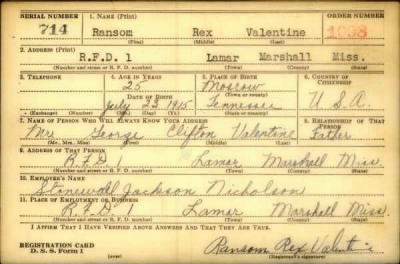 SERIAL NUMBER 1. NAME (Print) ORDER NUMBER
714 Ransom Rex Valentine 1038
(First) (Middle) (Last)
2. ADDRESS (Print)
R.F.D. 1 Lamar Marshall Miss.
(Number and street or R. F. D. number) (Town) (County) (State)
3. TELEPHONE 4. AGE IN YEARS 5. PLACE OF BIRTH 6. COUNTRY OF CITIZENSHIP
25 Moscow
DATE OF BIRTH (Town or county)
July 23 1915 Tennessee U.S.A.
(Exchange) (Number) (Mo.) (Day) (Yr.) (State or country)
7. NAME OF PERSON WHO WILL ALWAYS KNOW YOUR ADDRESS 8. RELATIONSHIP OF THAT PERSON
Mr. George Clifton Valentine Father
(Mr., Mrs., Miss) (First) (Middle) (Last)
9. ADDRESS OF THAT PERSON
R.F.D 1 Lamar Marshall Miss.
(Number and street or R. F. D. number) (Town) (County) (State)
10. EMPLOYER'S NAME
Stonewall Jackson Nicholson
11. PLACE OF EMPLOYMENT OR BUSINESS
R.F.D 1 Lamar Marshall Miss.
(Number and street or R. F. D. number) (Town) (County) (State)
I AFFIRM THAT I HAVE VERIFIED ABOVE ANSWERS AND THAT THEY ARE TRUE.
REGISTRATION CARD
D. S. S. Form 1 Ransom Rex Valentine
(Registrant's signature)